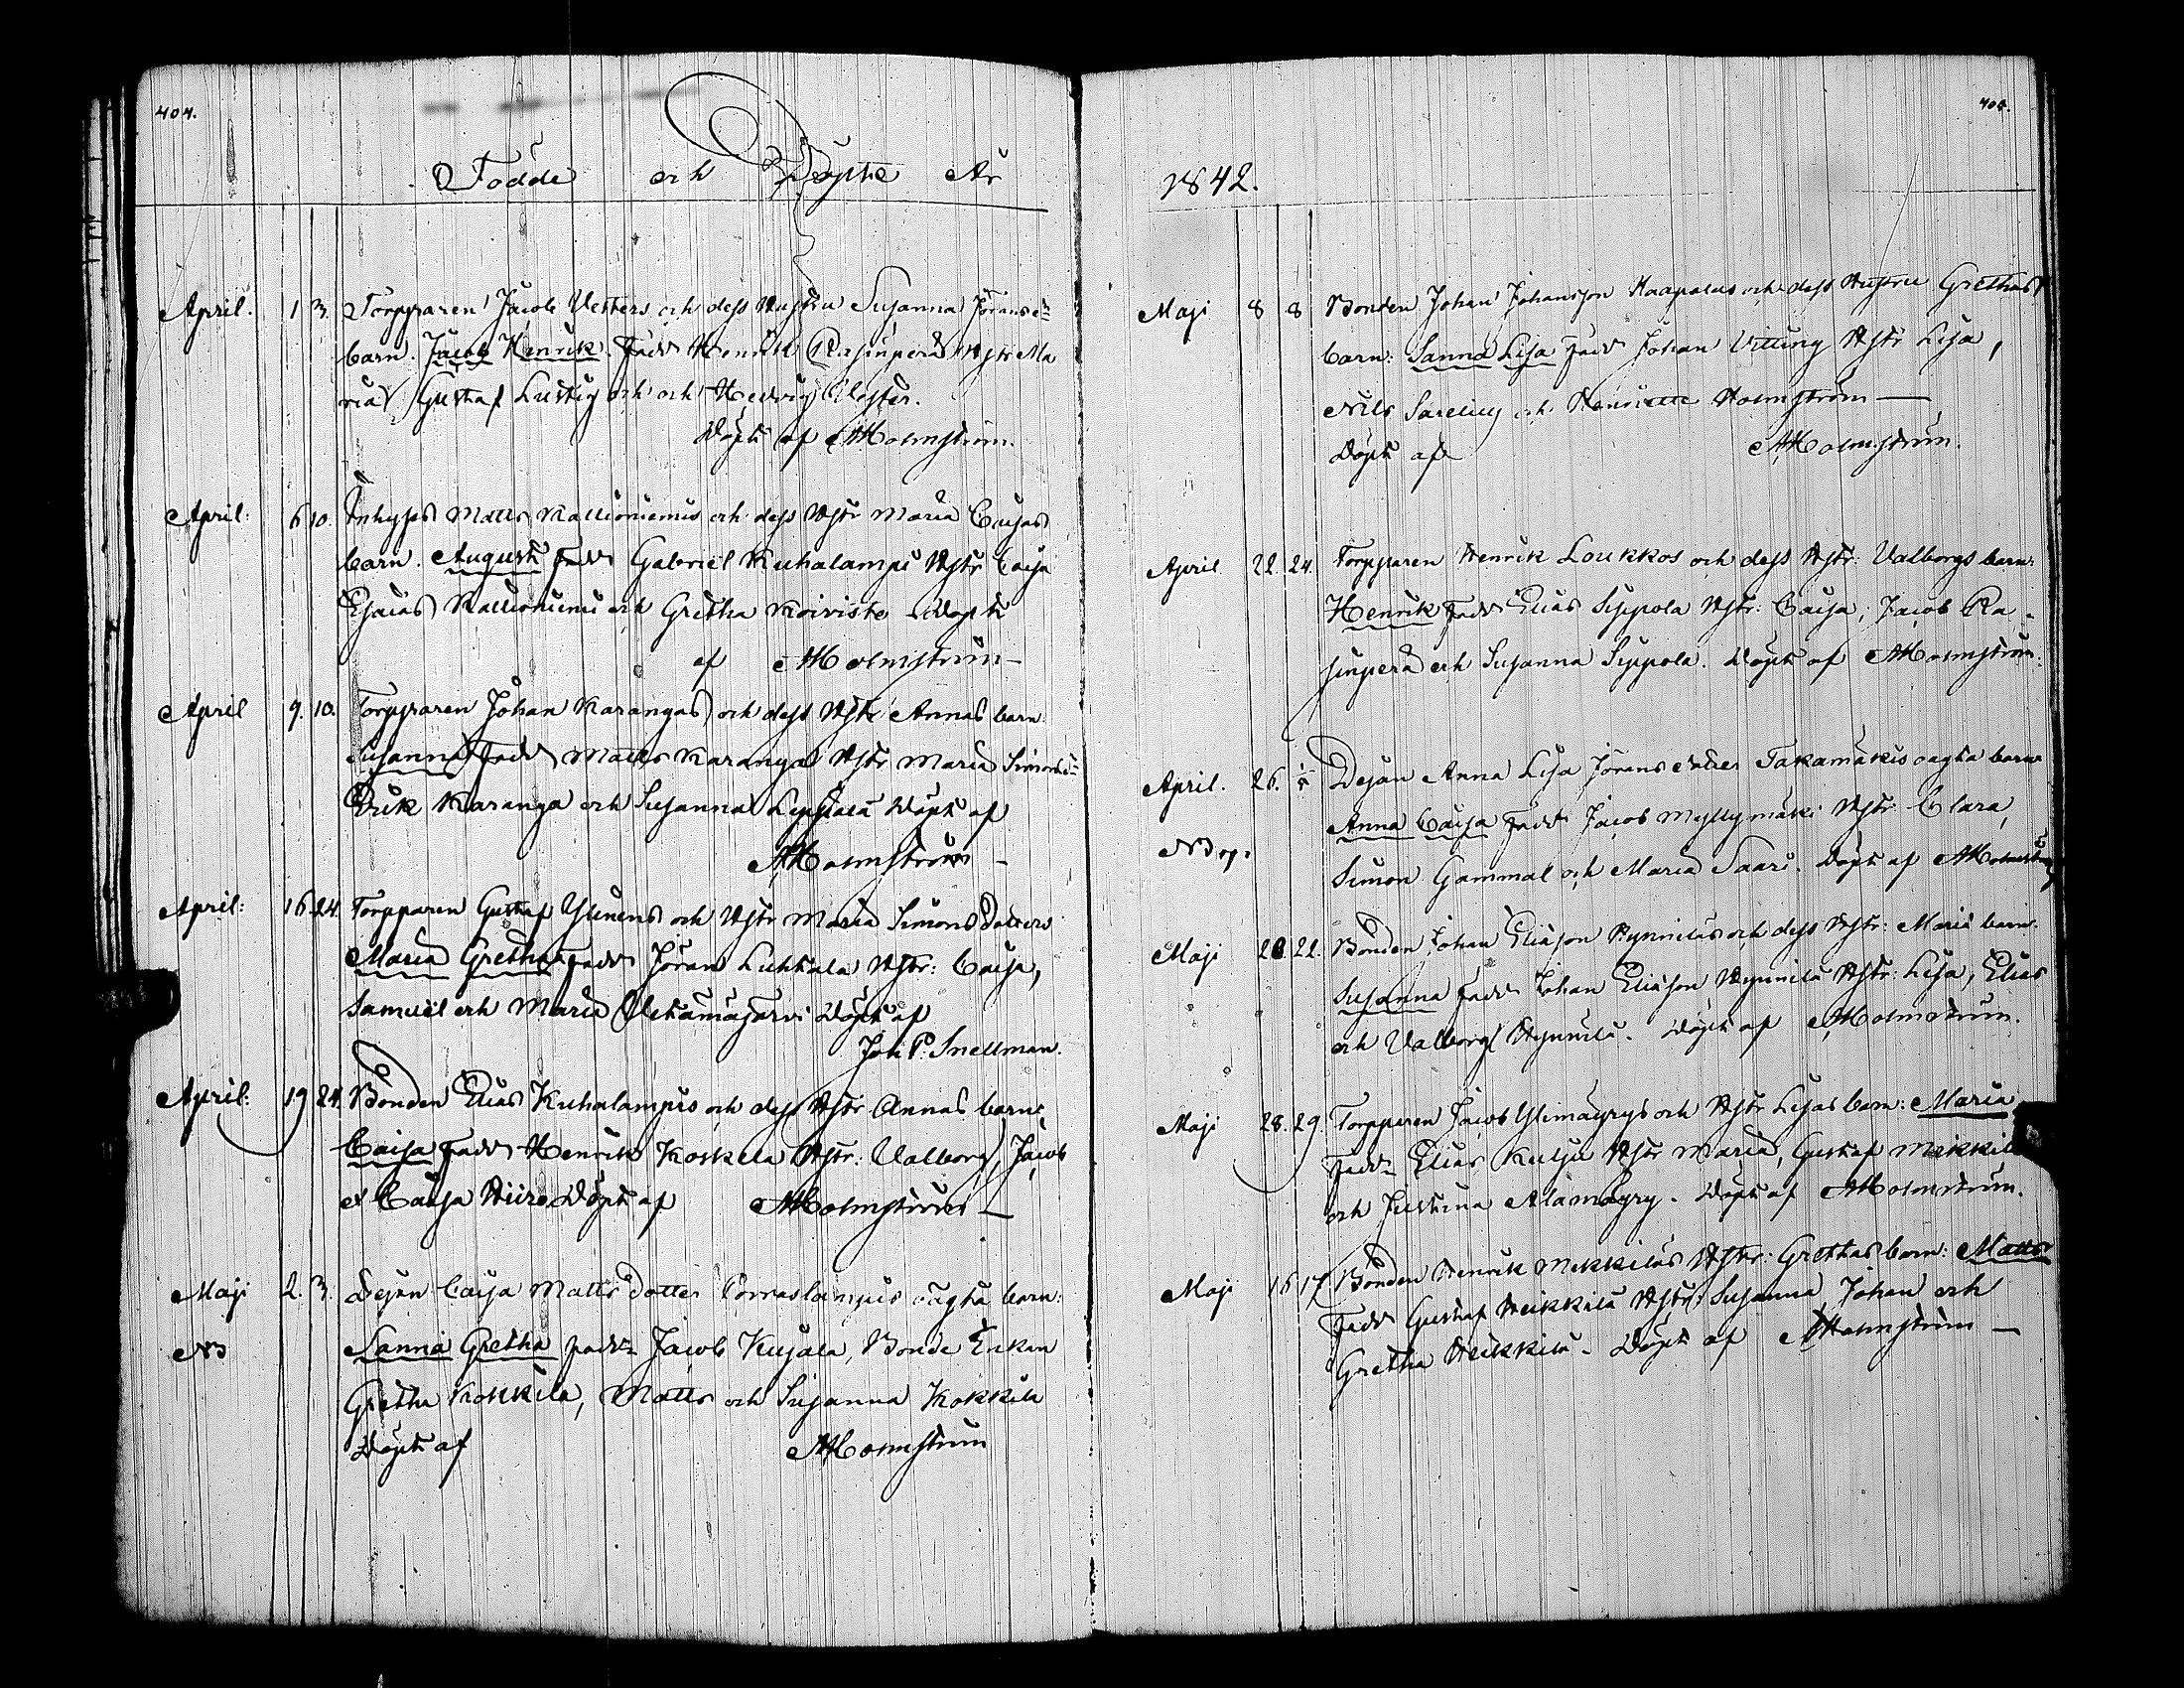 404.
Födde och Döpte År
April. 1 3. Torpparen Jacob Vesters och dess Hustru Susanna Jörans d:
barn. Jacob Henrik. Fadd: Henrik Rasinperä Hstr Ma
ria, Gustaf Lustig och Hedvig
Döpt af AHolmström.
April. 6 10. Inhyses Matts Kallioniemis och dess Hstr Maria Caisas
barn. August Fadd: Gabriel Kuhalampi Hstr Caisa
Esaias Kallioniemi och Gretha Koivisto Döpt
af AHolmström
April 9. 10. Torpparen Johan Karangas och dess Hstr Annas barn:
Susanna Fadd: Matts Karanga Hstr Maria Simonsd:
Erik Karanga och Susanna Leppälä Döpt af
AHolmström
April: 16. 24. Torpparen Gustaf Ylinens och Hstr Maria Simons Dotters
Maria Gretha Fadd: Jöran Luhtala Hstr: Caisa,
Samuel och Maria Döpt af
Joh. P. Snellman.
April: 19 24. Bonden Elias Kuhalampis och dess Hstr Annas barn:
Caisa Fadd: Henrik Koskela Hstr: Valborg, Jacob
et Caisa Hiiro Döpt af AHolmström
Maji 2. 3. Pigan Caisa Matts Dotter Porraslampis oägta barn:
NB Sanna Gretha Fadd: Jacob Kujala, Bonde Enkan
Gretha Kokkila, Matts och Susanna Kokkila
Döpt af AHolmström
1842.
Maji 8 8 Bonden Johan Johansson Haapalas och dess Hustru Grethas
barn: Sanna Lisa Fadd: Johan Vitting Hstr Lisa,
Nils Sarelius och Henriette Holmström
Döpt af AHolmström.
April 22. 24. Torpparen Henrik Loukkos och dess Hstr: Valborgs barn:
Henrik Fadd: Elias Sippola Hstr: Caisa, Jacob Ra-
sinperä och Susanna Sippola. Döpt af AHolmström.
April. 26. Pigan Anna Lisa Jörans Dotter Takamäkis oägta barn:
Anna Caisa Fadd: Jacob Myllymäki Hstr: Clara,
NB
Simon Gammal och Maria Saari. Döpt af AHolmström
Maji 20. 22. Bonden Johan Eliasson Hynniläs och dess Hstr: Maria barn:
Susanna Fadd: Johan Eliasson Hynnilä Hstr: Lisa, Elias
och Valborg Hynnilä. Döpt af AHolmström.
Maji 28. 29. Torpparen Jacob Ylimäyrys och Hstr Lisas barn: Maria
Fadd: Elias Kulju Hstr Maria, Gustaf Meikkilä
och Justina Alamäyry. Döpt af AHolmström.
Maji 16 17 Bonden Henrik Mekkiläs Hstr: Grethas barn: Matts
Fadd: Gustaf Heikkilä Hstr: Susanna Johan och
Gretha Heikkilä. Döpt af AHolmström